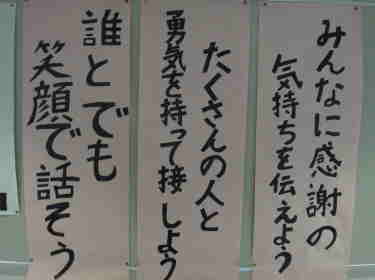 みんなに感謝の
気持ちを伝えよう
たくさんの人と
勇気を持って接しよう
誰とでも
笑顔で話そう